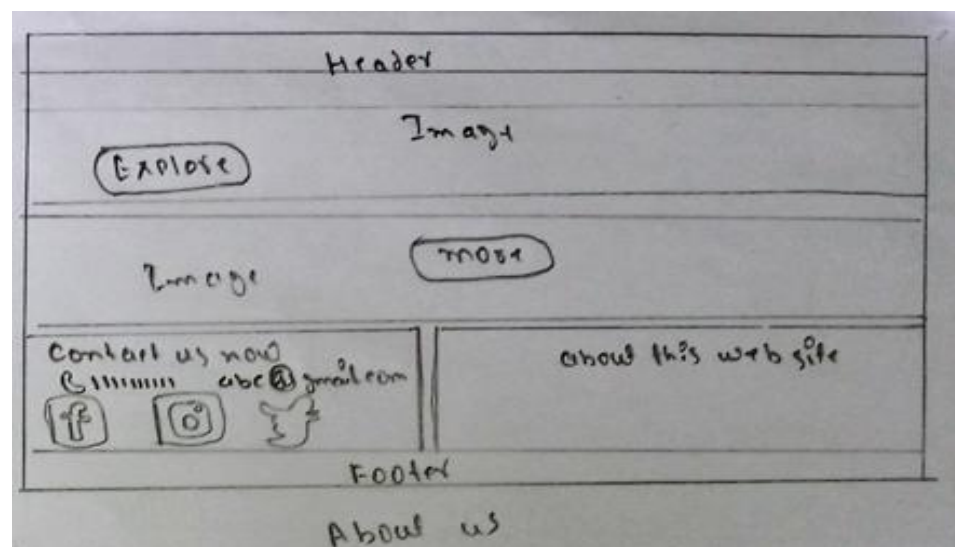 Header
Image
Explore
more
Image
Contact us now
abc@gmail.com
f
about this web site
Footer
About us